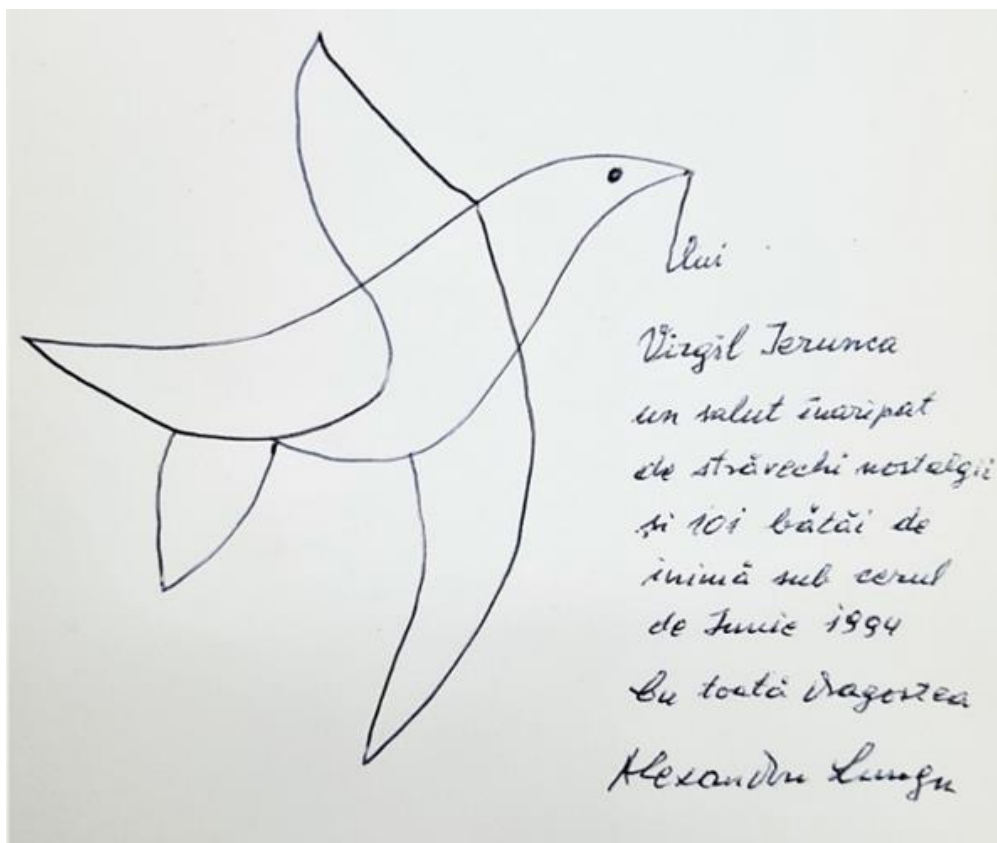 lui
Virgil Ierunca
un salut înaripat
de străvechi nostalgii
și 101 bătăi de
inimă sub cerul
de Iunie 1994
Cu toată dragostea
Alexandru Lungu